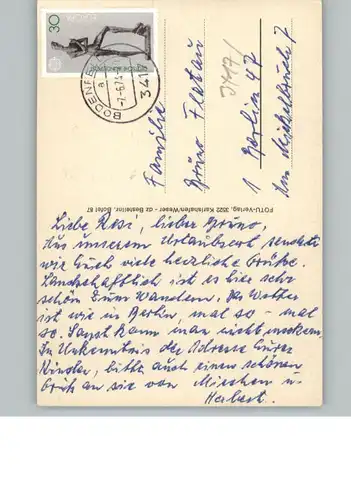 30
EUROPA
DEUTSCHE BUNDESPOST
BODENFE
a
-7.6.74-
341
Familie
Bruno Flatau
1 Berlin 47
Am
FOTU-Verlag, 3522 Karlshafen/Weser - dz Bestellnr. Bofel 67
Liebe Rosi, lieber Bruno,
Aus unserem Urlaubsort senden
wir Euch viele herzliche Grüße.
Landschaftlich ist es hier sehr
schön zum Wandern. Das Wetter
ist wie in Berlin, mal so - mal
so. Sonst kann man nicht meckern.
In Unkenntnis der Adresse Eurer
Kinder, bitte auch einen schönen
Gruß an sie von u.
Herbert.